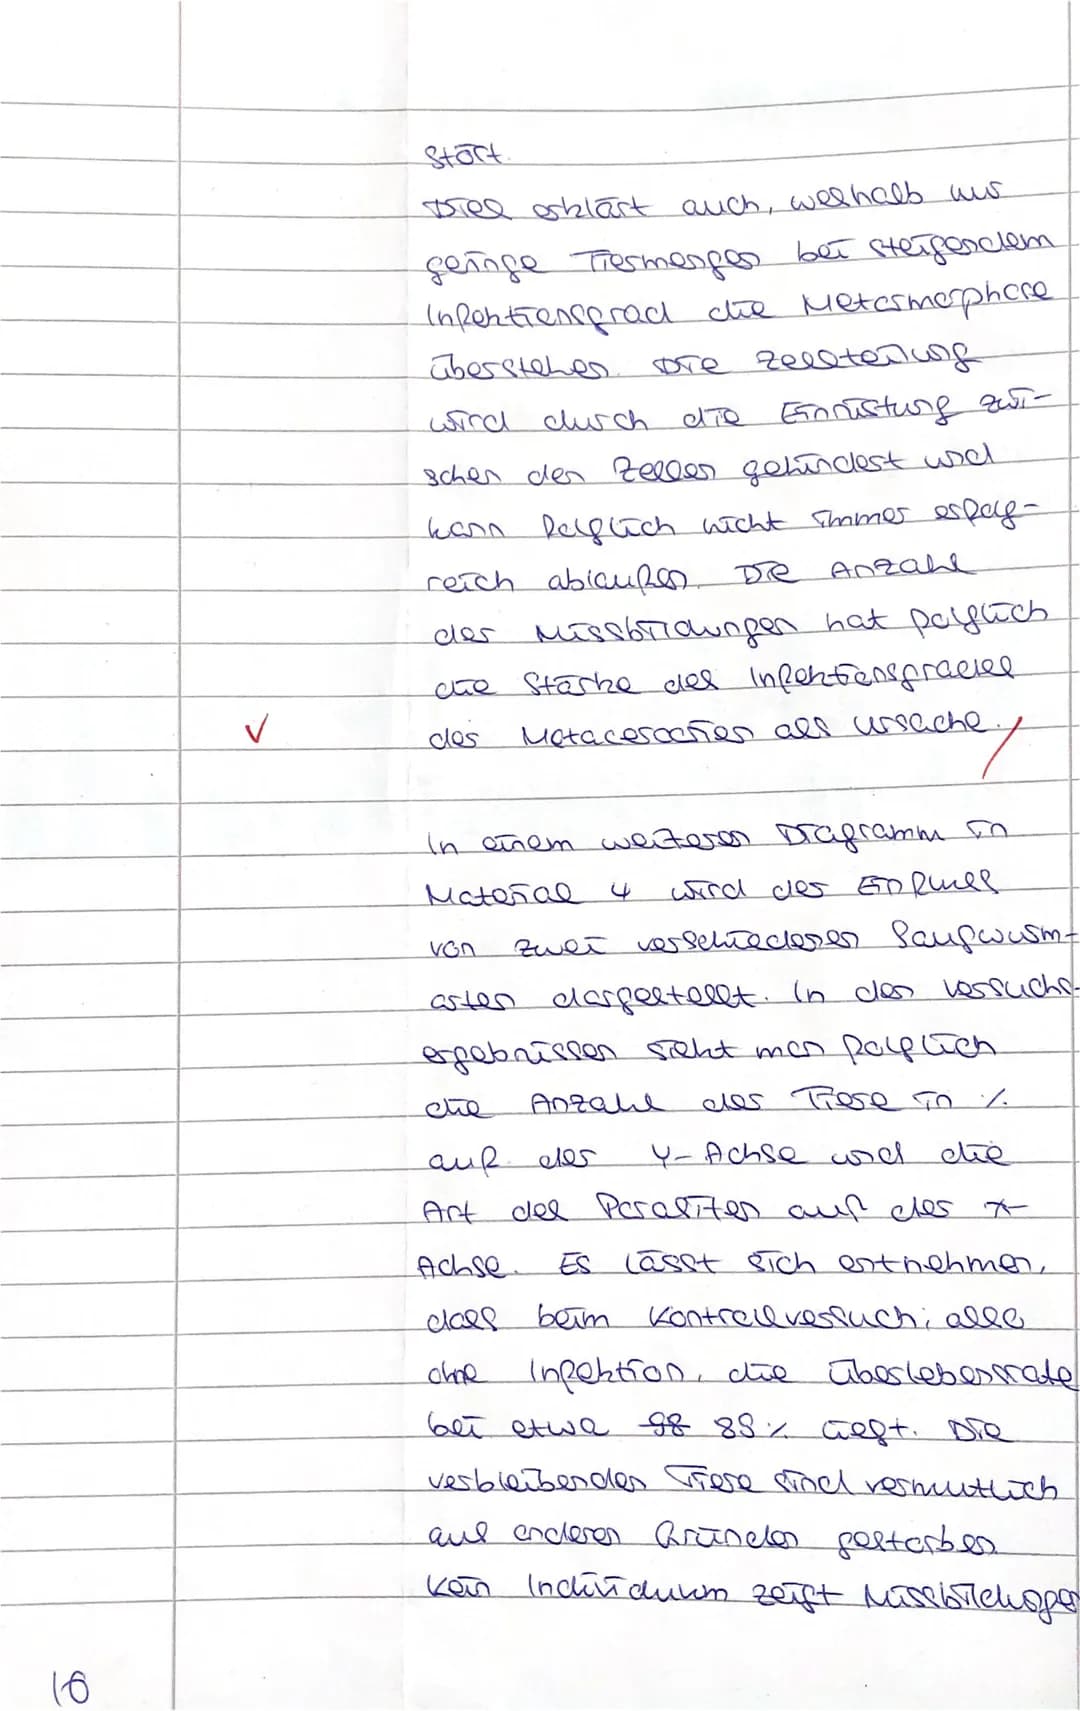 stört.
Dies erklärt auch, weshalb nur
geringe Tiermengen bei steigendem
Infektionsgrad die Metamorphose
überstehen. Die Zellteilung
wird durch die Einnistung zwi-
schen den Zellen gehindert und
kann folglich nicht immer erfolg-
reich ablaufen. Die Anzahl
der Missbildungen hat folglich
die Stärke des Infektionsgrades
der Metacercarien als Ursache.
✓
In einem weiteren Diagramm in
Material 4 wird der Einfluss
von zwei verschiedenen Saugwurm-
arten dargestellt. In den Versuchs-
ergebnissen sieht man folglich
die Anzahl der Tiere in %
auf der Y-Achse und die
Art des Parasiten auf der x-
Achse. Es lässt sich entnehmen,
dass beim Kontrollversuch, also
ohne Infektion, die Überlebensrate
bei etwa 88% liegt. Die
verbleibenden Tiere sind vermutlich
aus anderen Gründen gestorben
Kein Individuum zeigt Missbildungen
16